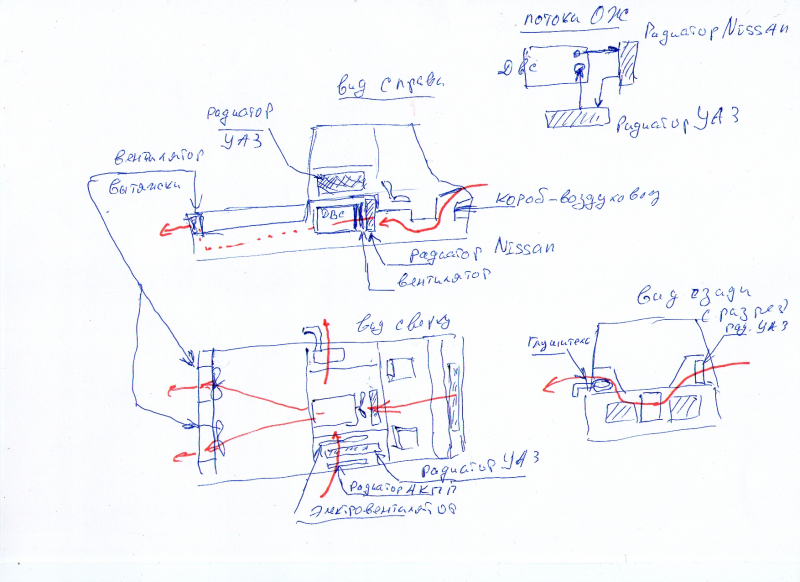 потоки ОЖ
Радиатор Nissan
ДВС
Радиатор УАЗ
вид справа
Радиатор
УАЗ
вентилятор
вытяжки
ДВС
короб-воздуховод
радиатор Nissan
вентилятор
вид сверху
Радиатор УАЗ
Радиатор АКПП
Электровентилятор
вид сзади
с разрез
рад. УАЗ
Глушитель